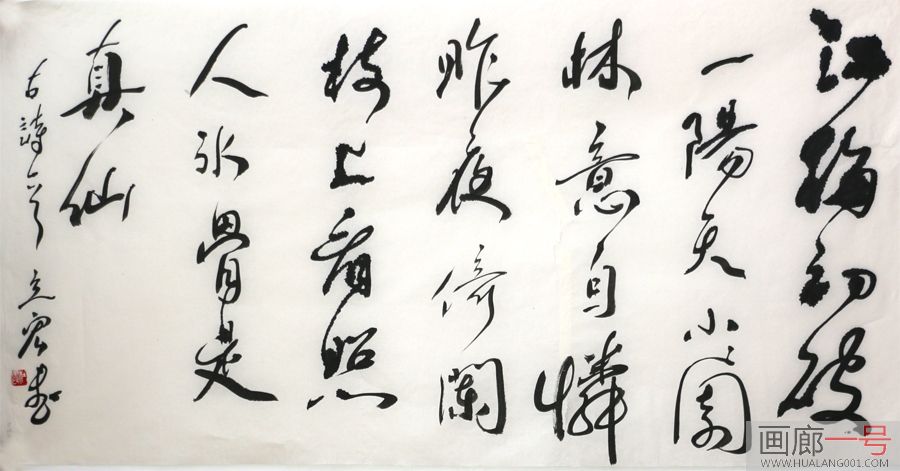 江梅初破
一陽天小園
林意自憐
昨夜倚闌
枝上看照
人冰骨是
真仙
古詩一首 立宏書
画廊一号
WWW.HUALANG001.COM